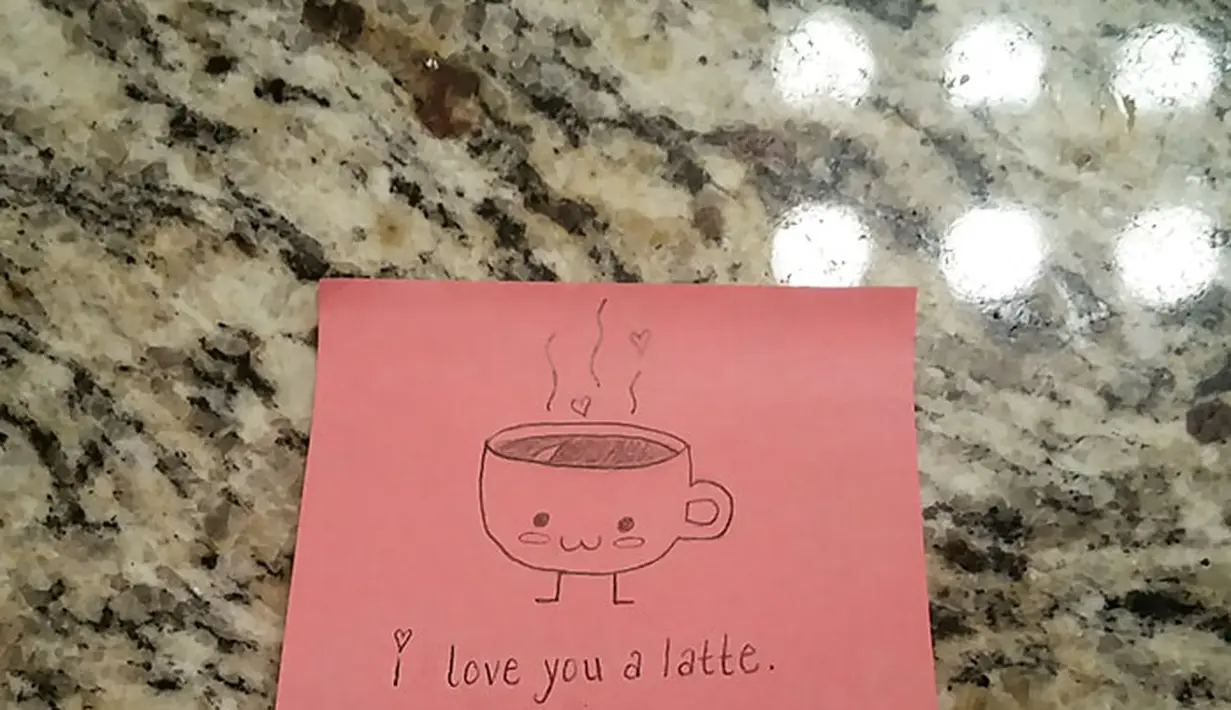 i love you a latte.